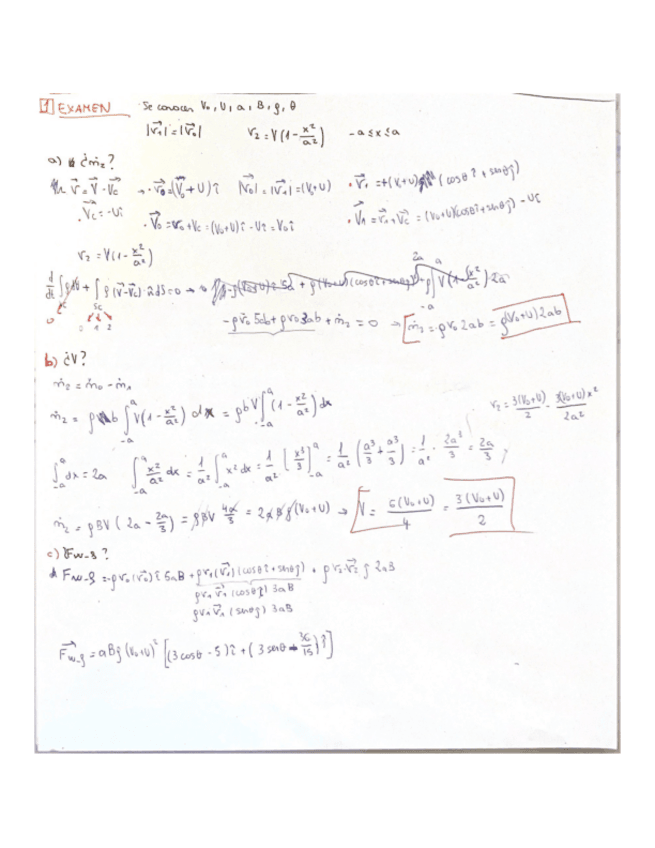 1 EXAMEN Se conocen V₀, U, a, B, ρ, θ
|v₁⃗| = |v₀⃗| v₂ = V(1 - x²/a²) -a ≤ x ≤ a
a) ¿ṁ₂?
v⃗ = V⃗ - V⃗c → v₀⃗ = (V₀ + U)î |v₀⃗| = |v₁⃗| = (V₀ + U) • v₁⃗ = (V₀+U) (cosθ î + senθ ĵ)
• V⃗c = -Uî • V₀⃗ = v₀ + Vc = (V₀+U)î - Uî = V₀î • V₁⃗ = v₁⃗ + V⃗c = (V₀+U)(cosθ î + senθ ĵ) - Uî
v₂ = V(1 - x²/a²)
d/dt ∫ρdV + ∫ρ(V⃗ - V⃗c)
0 0 1 2
-ρv₀5ab + ρv₀3ab + ṁ₂ = 0 → ṁ₂ = ρv₀2ab = ρ(V₀+U)2ab
b) ¿V?
ṁ₂ = ṁ₀ - ṁ₁
ṁ₂ = ρb ∫₋ₐᵃ V(1 - x²/a²) dx = ρbV ∫₋ₐᵃ (1 - x²/a²) dx v₂ = 3(V₀+U)/2 - 3(V₀+U)x²/2a²
∫₋ₐᵃ dx = 2a ∫₋ₐᵃ x²/a² dx = 1/a² ∫₋ₐᵃ x² dx = 1/a² [x³/3]₋ₐᵃ = 1/a² (a³/3 + a³/3) = 1/a² · 2a³/3 = 2a/3
ṁ₂ = ρBV (2a - 2a/3) = ρBV 4a/3 = 2aBρ(V₀+U) → V = 6(V₀+U)/4 = 3(V₀+U)/2
c) F⃗w-g?
F⃗w-g = -ρv₀(v₀⃗)î 5aB + ρv₁(v₁⃗)(cosθ î + senθ ĵ) + ρv₂·v₂⃗ ĵ 2aB
ρv₁ v₁⃗ (cosθ î) 3aB
ρv₁ v₁⃗ (senθ ĵ) 3aB
F⃗w-g = aBρ(V₀+U)² [(3cosθ - 5)î + (3senθ - 36/15)ĵ]